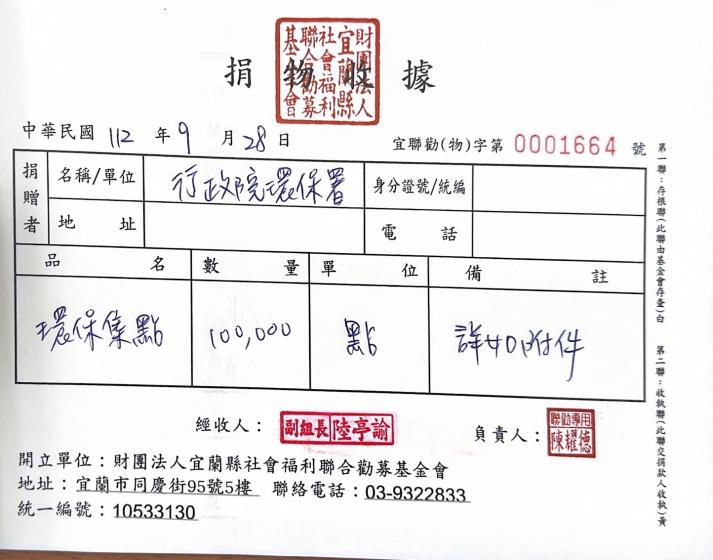 捐物收據
財團法人宜蘭縣社會福利聯合勸募基金會
中華民國 112 年 9 月 28 日
宜聯勸(物)字第 0001664 號
捐贈者
名稱/單位 行政院環保署 身分證號/統編
地址 電話
品名 數量 單位 備註
環保集點 100,000 點 詳如附件
經收人: 副組長 陸亭諭
負責人: 聯勸專用 陳耀德
開立單位:財團法人宜蘭縣社會福利聯合勸募基金會
地址:宜蘭市同慶街95號5樓 聯絡電話:03-9322833
統一編號:10533130
第一聯:存根聯(此聯由基金會存查)白
第二聯:收執聯(此聯交捐款人收執)黃